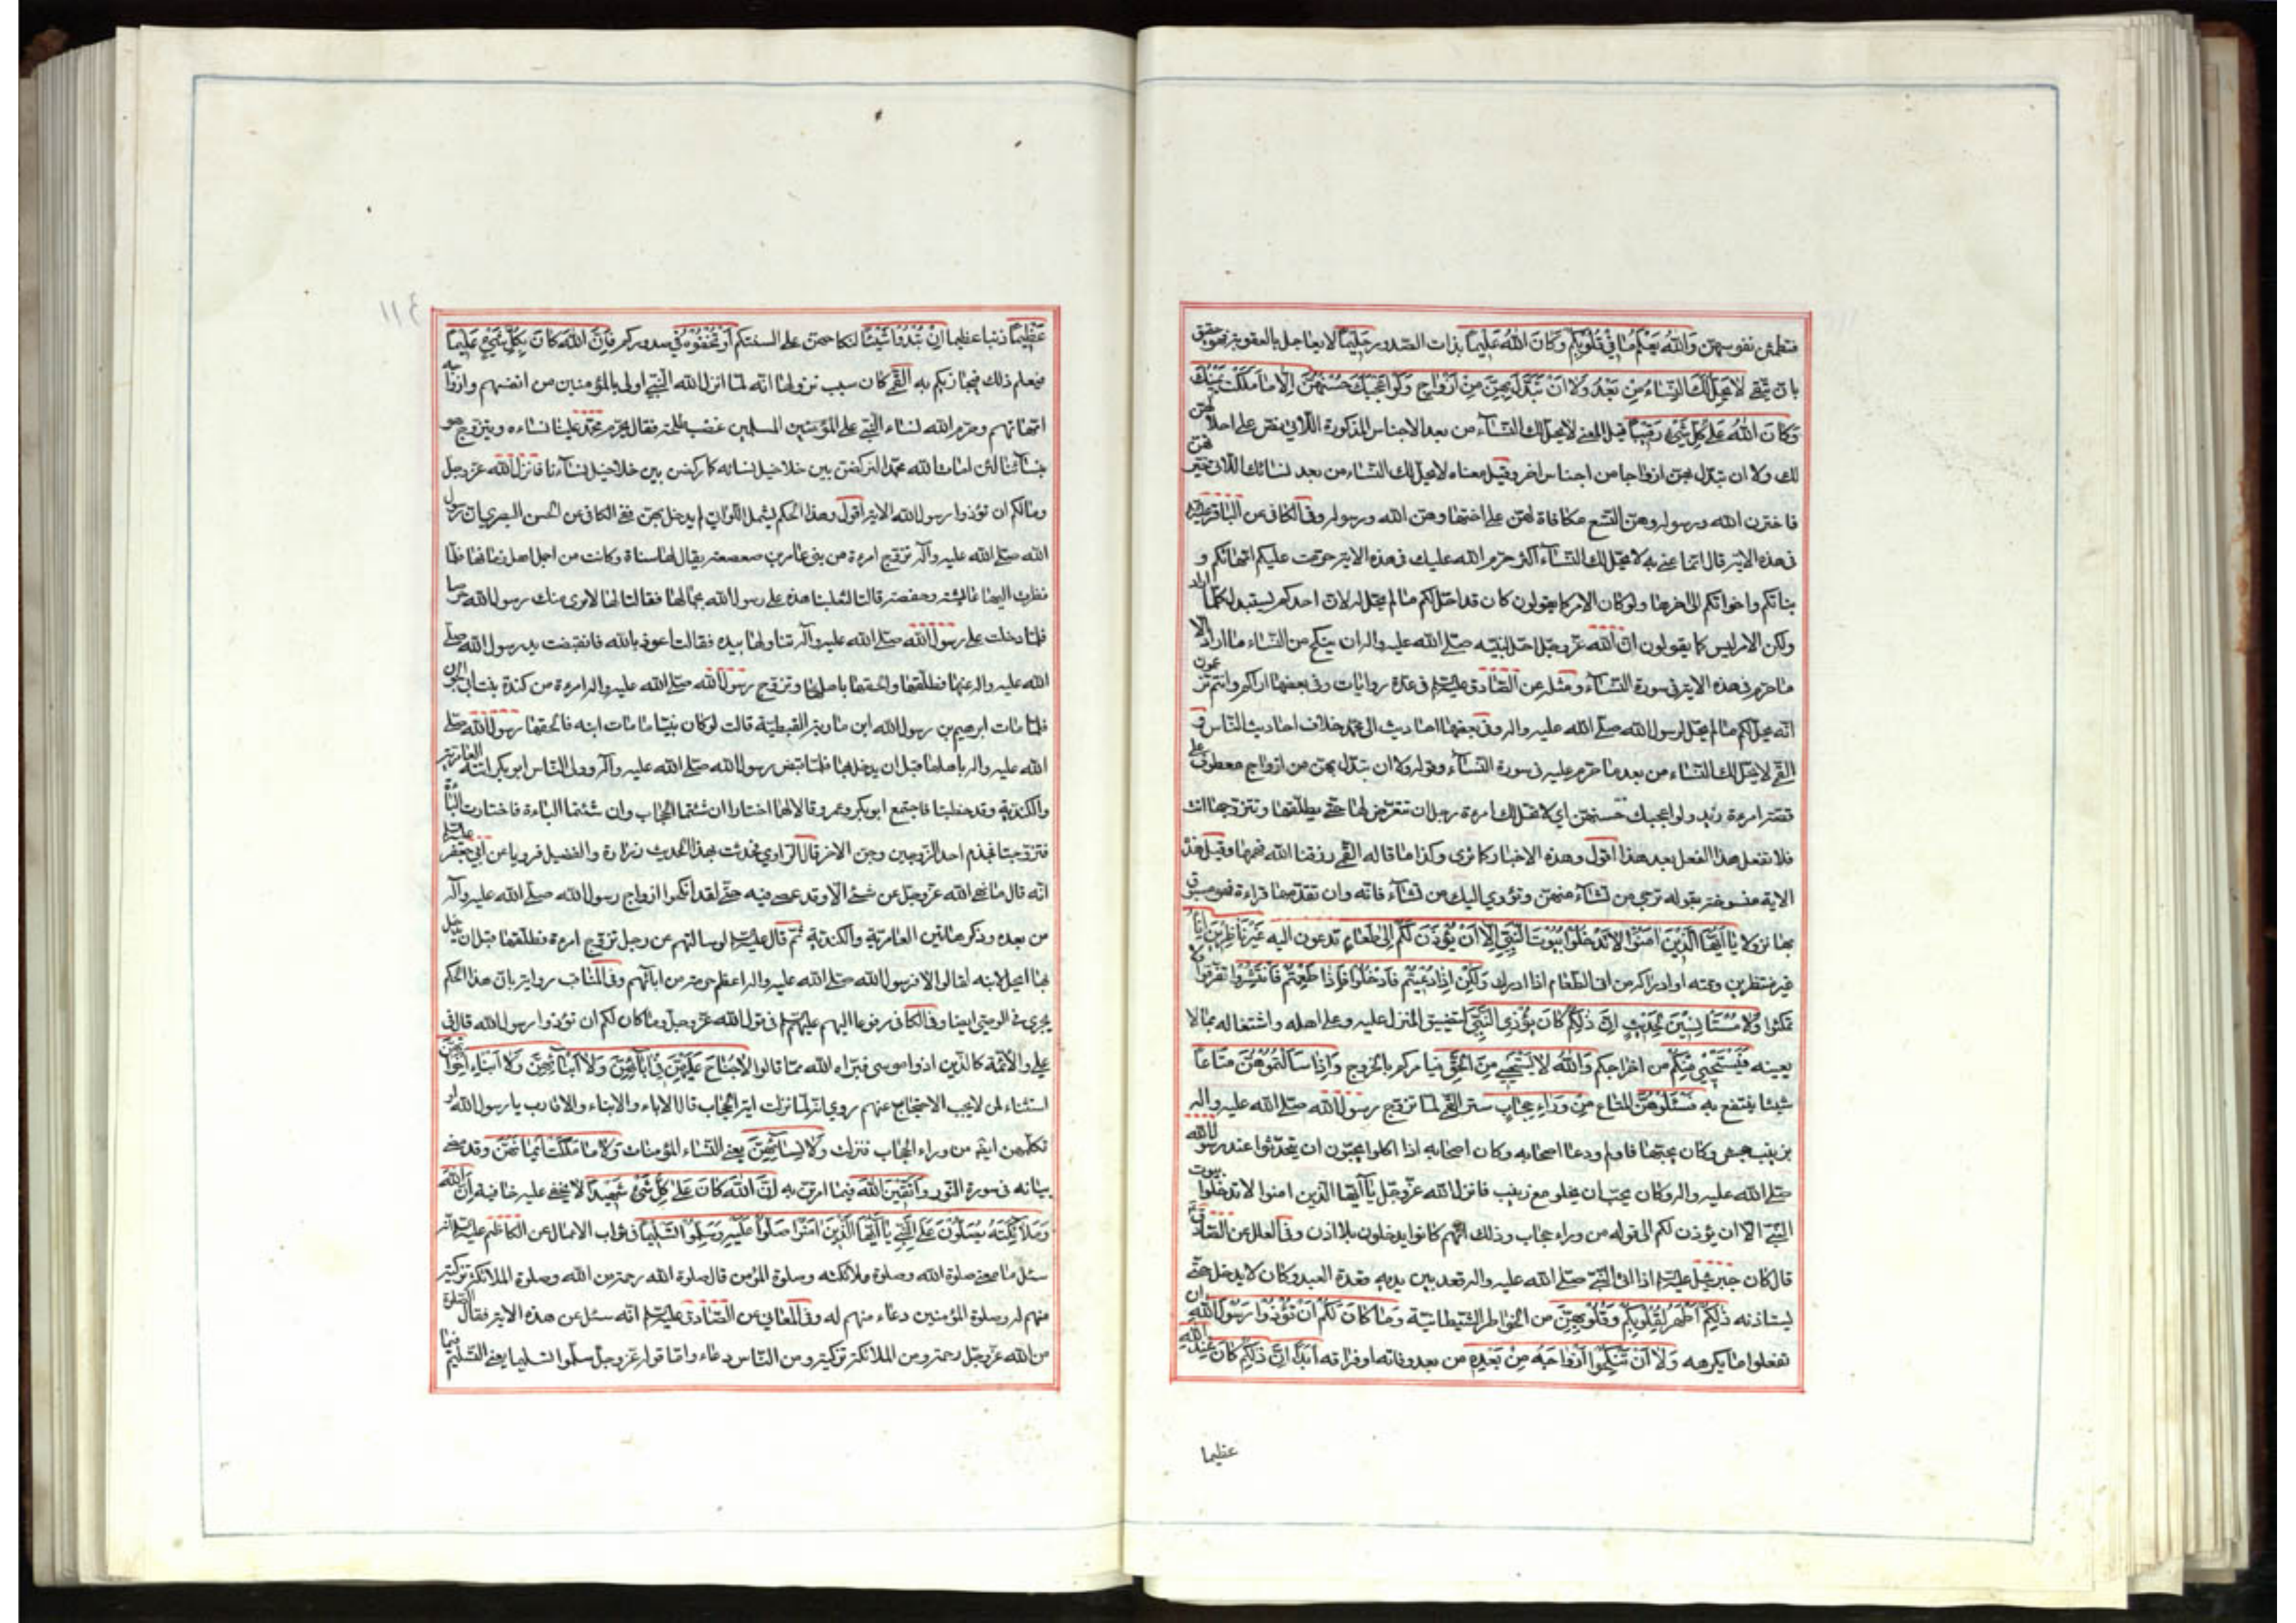 فتطمئن نفوسهن وَاللهُ يَعْلَمُ مَا فِي قُلُوبِكُمْ وَكَانَ اللهُ عَلِيمًا بذات الصدور حَلِيمًا لا يعاجل بالعقوبة فهو حقيق
بان يتقى لَا يَحِلُّ لَكَ النِّسَاءُ مِنْ بَعْدُ وَلَا أَنْ تَبَدَّلَ بِهِنَّ مِنْ أَزْوَاجٍ وَلَوْ أَعْجَبَكَ حُسْنُهُنَّ إِلَّا مَا مَلَكَتْ يَمِينُكَ
وَكَانَ اللهُ عَلَى كُلِّ شَيْءٍ رَقِيبًا قيل المعنى لا يحل لك النسآء من بعد الاجناس المذكورة اللاتى نص على احلالهن
لك ولا ان تبدل بهن ازواجا من اجناس اخر وقيل معناه لا يحل لك النساء من بعد نسائك اللاتى خيرتهن
فاخترن الله ورسوله وهن التسع مكافاة لهن على اختيارهن الله ورسوله وفى الكافى عن الباقر عليه
فى هذه الاية قال انما عنى به لا يحل لك النسآء التى حرم الله عليك فى هذه الاية حرمت عليكم امهاتكم و
بناتكم واخواتكم الى اخرها ولو كان الامر كما يقولون كان قد احل لكم ما لم يحل له لان احدكم يستبدل كلما اراد
ولكن الامر ليس كما يقولون ان الله عز وجل احل لنبيه صلى الله عليه واله ان ينكح من النساء ما اراد الا
ما حرم فى هذه الاية فى سورة النسآء ومثله عن الصادق عليه السلام فى عدة روايات وفى بعضها اراكم وانتم تزعمون
انه يحل لكم ما لم يحل لرسول الله صلى الله عليه واله وفى بعضها احاديث ال محمد خلاف احاديث الناس و
القمى لا يحل لك النساء من بعد ما حرم عليه فى سورة النسآء وقوله ولا ان تبدل بهن من ازواج معطوف على
قصة امرءة زيد ولو اعجبك حسنهن اى لا تحل لك امرءة رجل ان تتعرض لها حتى يطلقها وتتزوجها انت
فلا تفعل هذا الفعل بعد هذا اقول وهذه الاخبار كما ترى وكذا ما قاله القمى رزقنا الله فهمها وقيل هذه
الاية منسوخة بقوله ترجى من تشآء منهن وتؤوى اليك من تشآء فانه وان تقدمها قراءة فهو مسبوق
بها نزولا يَا أَيُّهَا الَّذِينَ آمَنُوا لَا تَدْخُلُوا بُيُوتَ النَّبِيِّ إِلَّا أَنْ يُؤْذَنَ لَكُمْ إِلَى طَعَامٍ تدعون اليه غَيْرَ نَاظِرِينَ إِنَاهُ
غير منتظرين وقته او ادراكه من انى الطعام اذا ادرك وَلَكِنْ إِذَا دُعِيتُمْ فَادْخُلُوا فَإِذَا طَعِمْتُمْ فَانْتَشِرُوا تفرقوا ولا
تمكثوا وَلَا مُسْتَأْنِسِينَ لِحَدِيثٍ إِنَّ ذَلِكُمْ كَانَ يُؤْذِي النَّبِيَّ لتضييق المنزل عليه وعلى اهله واشتغاله بما لا
يعينه فَيَسْتَحْيِي مِنْكُمْ من اخراجكم وَاللهُ لَا يَسْتَحْيِي مِنَ الْحَقِّ فيامركم بالخروج وَإِذَا سَأَلْتُمُوهُنَّ مَتَاعًا
شيئا ينتفع به فَسْئَلُوهُنَّ المتاع مِنْ وَرَاءِ حِجَابٍ ستر القمى لما تزوج رسول الله صلى الله عليه واله
بزينب بنت جحش وكان يحبها فاولم ودعا اصحابه وكان اصحابه اذا اكلوا يحبون ان يتحدثوا عند رسول الله
صلى الله عليه واله وكان يحب ان يخلو مع زينب فانزل الله عز وجل يا ايها الذين امنوا لا تدخلوا بيوت
النبى الا ان يؤذن لكم الى قوله من وراء حجاب وذلك انهم كانوا يدخلون بلا اذن وفى العلل عن الصادق
قال كان جبرئيل عليه السلام اذا اتى النبى صلى الله عليه واله قعد بين يديه قعدة العبد وكان لا يدخل حتى
يستاذنه ذَلِكُمْ أَطْهَرُ لِقُلُوبِكُمْ وَقُلُوبِهِنَّ من الخواطر الشيطانية وَمَا كَانَ لَكُمْ أَنْ تُؤْذُوا رَسُولَ اللهِ ان
تفعلوا ما يكرهه وَلَا أَنْ تَنْكِحُوا أَزْوَاجَهُ مِنْ بَعْدِهِ من بعد وفاته او فراقه أَبَدًا إِنَّ ذَلِكُمْ كَانَ عِنْدَ اللهِ
عظيما
عَظِيمًا ذنبا عظيما إِنْ تُبْدُوا شَيْئًا لنكاحهن على السنتكم أَوْ تُخْفُوهُ فى صدوركم فَإِنَّ اللهَ كَانَ بِكُلِّ شَيْءٍ عَلِيمًا
فيعلم ذلك فيجازيكم به القمى كان سبب نزولها انه لما انزل الله النبى اولى بالمؤمنين من انفسهم وازواجه
امهاتهم وحرم الله نساء النبى على المؤمنين المسلمين غضب طلحة فقال يحرم محمد علينا نساءه ويتزوج هو
بنسآئنا لئن امات الله محمدا لنركضن بين خلاخيل نسائه كما ركض بين خلاخيل نسآءنا فانزل الله عز وجل
وما لكم ان تؤذوا رسول الله الاية اقول وهذا الحكم يشمل اللواتى لم يدخل بهن ففى الكافى عن الحسن البصرى ان رسول
الله صلى الله عليه واله تزوج امرءة من بنى عامر بن صعصعة يقال لها سناة وكانت من اجمل اهل زمانها فلما
نظرت اليها عايشة وحفصة قالتا لتغلبنا هذه على رسول الله بجمالها فقالتا لها لا يرى منك رسول الله حرصا
فلما دخلت على رسول الله صلى الله عليه واله تناولها بيده فقالت اعوذ بالله فانقبضت يد رسول الله صلى
الله عليه واله عنها فطلقها والحقها باهلها وتزوج رسول الله صلى الله عليه واله امرءة من كندة بنت ابى الجون
فلما مات ابرهيم بن رسول الله ابن مارية القبطية قالت لو كان نبيا ما مات ابنه فالحقها رسول الله صلى
الله عليه واله باهلها قبل ان يدخل بها فلما قبض رسول الله صلى الله عليه واله وولى الناس ابو بكر اتته العامرية
والكندية وقد خطبتا فاجتمع ابو بكر وعمر وقالا لهما اختارا ان شئتما الحجاب وان شئتما الباءة فاختارتا الباءة
فتزوجتا فجذم احد الزوجين وجن الاخر قال الراوى فحدثت بهذا الحديث زرارة والفضيل فرويا عن ابى جعفر عليه السلام
انه قال ما نهى الله عز وجل عن شئ الا وقد عصى فيه حتى لقد انكحوا ازواج رسول الله صلى الله عليه واله
من بعده وذكر هاتين العامرية والكندية ثم قال عليه السلام لو سالتهم عن رجل تزوج امرءة فطلقها قبل ان يدخل
بها اتحل لابنه لقالوا لا فرسول الله صلى الله عليه واله اعظم حرمة من ابآئهم وفى المناقب رواية بان هذا الحكم
يجرى فى الوصى ايضا وفى الكافى مرفوعا اليهم عليهم السلام فى قول الله عز وجل وما كان لكم ان تؤذوا رسول الله قال فى
على والائمة كالذين اذوا موسى فبراه الله مما قالوا لَا جُنَاحَ عَلَيْهِنَّ فِي آبَائِهِنَّ وَلَا أَبْنَائِهِنَّ وَلَا أَبْنَاءِ إِخْوَانِهِنَّ
استثناء لمن لا يجب الاحتجاب عنهم روى انه لما نزلت اية الحجاب قال الاباء والابناء والاقارب يا رسول الله او
نكلمهن ايضا من وراء الحجاب فنزلت وَلَا نِسَائِهِنَّ يعنى النساء المؤمنات وَلَا مَا مَلَكَتْ أَيْمَانُهُنَّ وقد مضى
بيانه فى سورة النور وَاتَّقِينَ اللهَ فيما امرتن به إِنَّ اللهَ كَانَ عَلَى كُلِّ شَيْءٍ شَهِيدًا لا يخفى عليه خافية إِنَّ اللهَ
وَمَلَائِكَتَهُ يُصَلُّونَ عَلَى النَّبِيِّ يَا أَيُّهَا الَّذِينَ آمَنُوا صَلُّوا عَلَيْهِ وَسَلِّمُوا تَسْلِيمًا فى ثواب الاعمال عن الكاظم عليه السلام انه
سئل ما معنى صلوة الله وصلوة ملائكته وصلوة المؤمن قال صلوة الله رحمة من الله وصلوة الملائكة تزكية
منهم له وصلوة المؤمنين دعاء منهم له وفى المعانى عن الصادق عليه السلام انه سئل عن هذه الاية فقال الصلوة
من الله عز وجل رحمة ومن الملائكة تزكية ومن الناس دعاء واما قوله عز وجل سلموا تسليما يعنى التسليم فيما